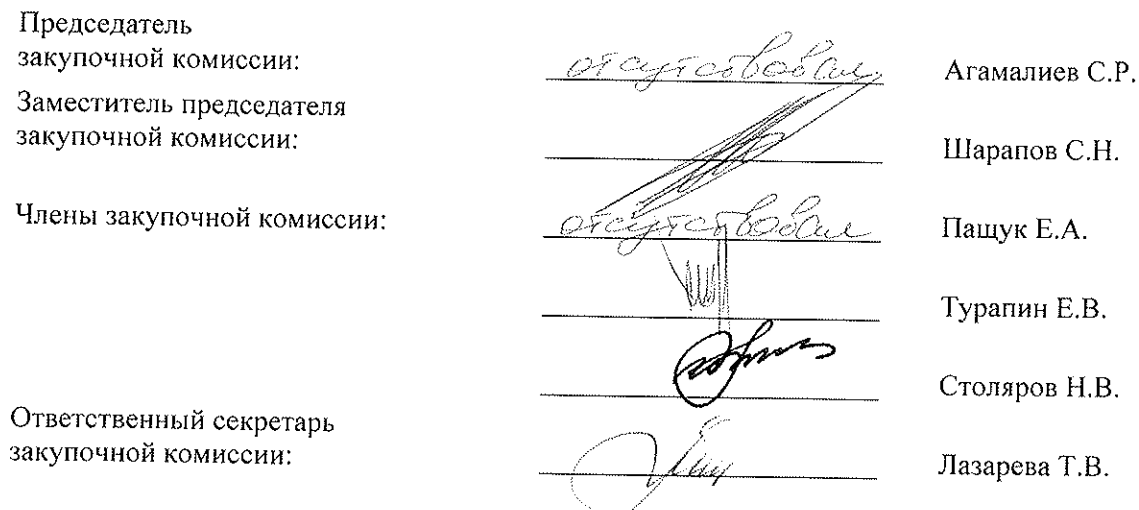 Председатель
закупочной комиссии: отсутствовал Агамалиев С.Р.
Заместитель председателя
закупочной комиссии: Шарапов С.Н.
Члены закупочной комиссии: отсутствовал Пащук Е.А.
Турапин Е.В.
Столяров Н.В.
Ответственный секретарь
закупочной комиссии: Лазарева Т.В.